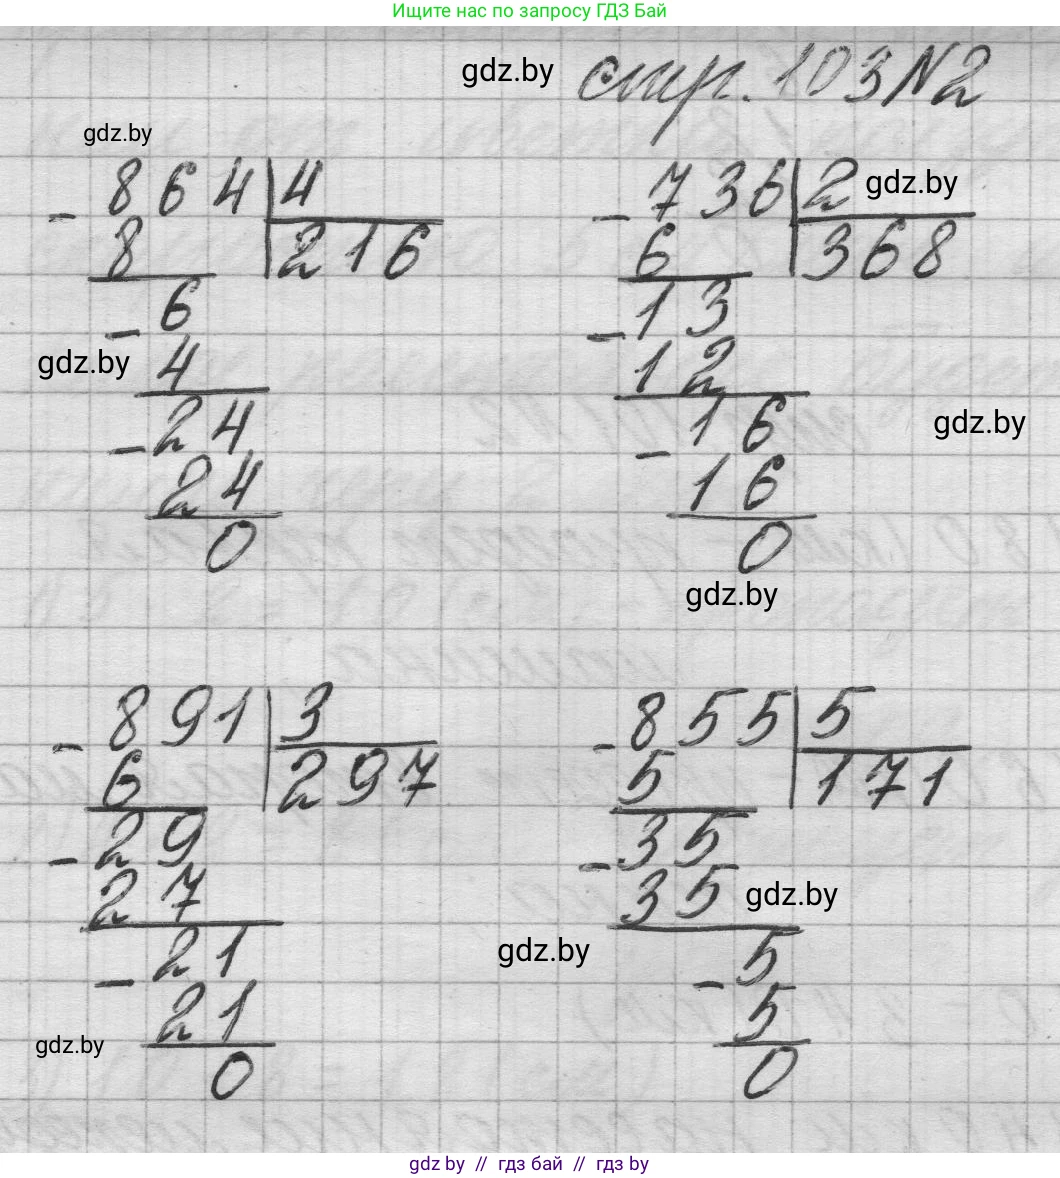 Ищите нас по запросу ГДЗ Бай
gdz.by стр. 103 N2
gdz.by
- 864 4
8 216
- 6
gdz.by 4
- 24
24
0
- 736 2 gdz.by
6 368
- 13
12
- 16 gdz.by
16
0
gdz.by
- 891 3
6 297
- 29
27
- 21
21
gdz.by
0
- 855 5
5 171
- 35
35 gdz.by
gdz.by
- 5
5
0
gdz.by // гдз бай // гдз by